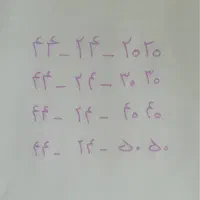 ۴۴_ ۲۴_ ۲۰۲۰
۴۴_ ۲۴_ ۳۰ ۳۰
۴۴_ ۲۴_ ۴۰ ۴۰
۴۴_ ۲۴_ ۵۰ ۵۰